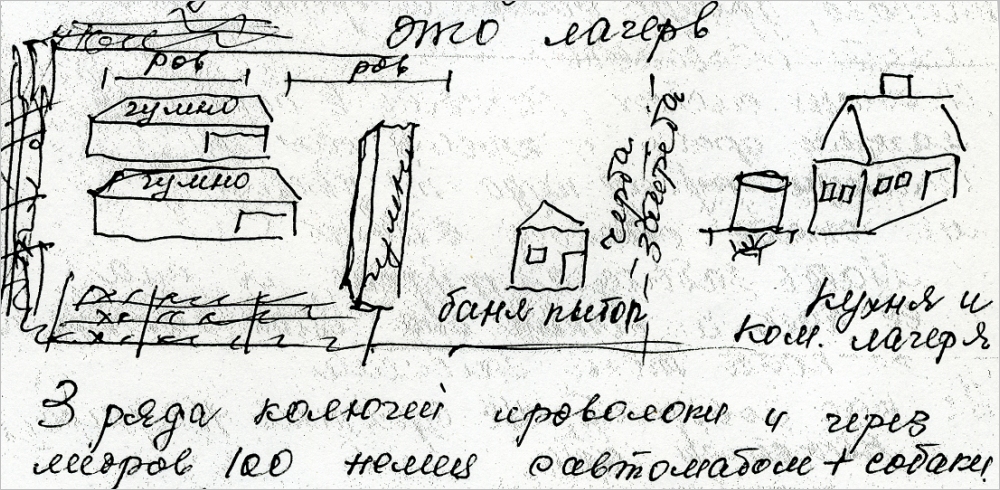 это лагерь
ров ров
гумно
гумно
гумно
черта
запрета
баня пыток
кухня и
ком. лагеря
3 ряда колючей проволоки и через
метров 100 немец с автоматом + собаки